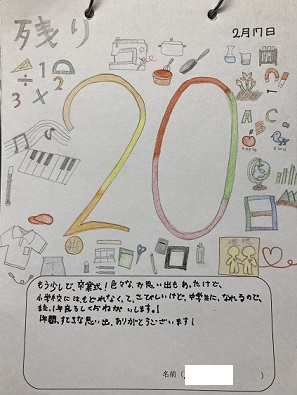 残り
2月17日
÷ 1 2
3 ×
20
A B C
apple
bird
もう少しで、卒業式！色々な、思い出もあったけど、
小学校には、もどれなくて、さびしいけど、中学生に、なれるので、
また、1年良ろしくおねがいします。！
1年間、すてきな思い出、ありがとうございます！
名前（ ）